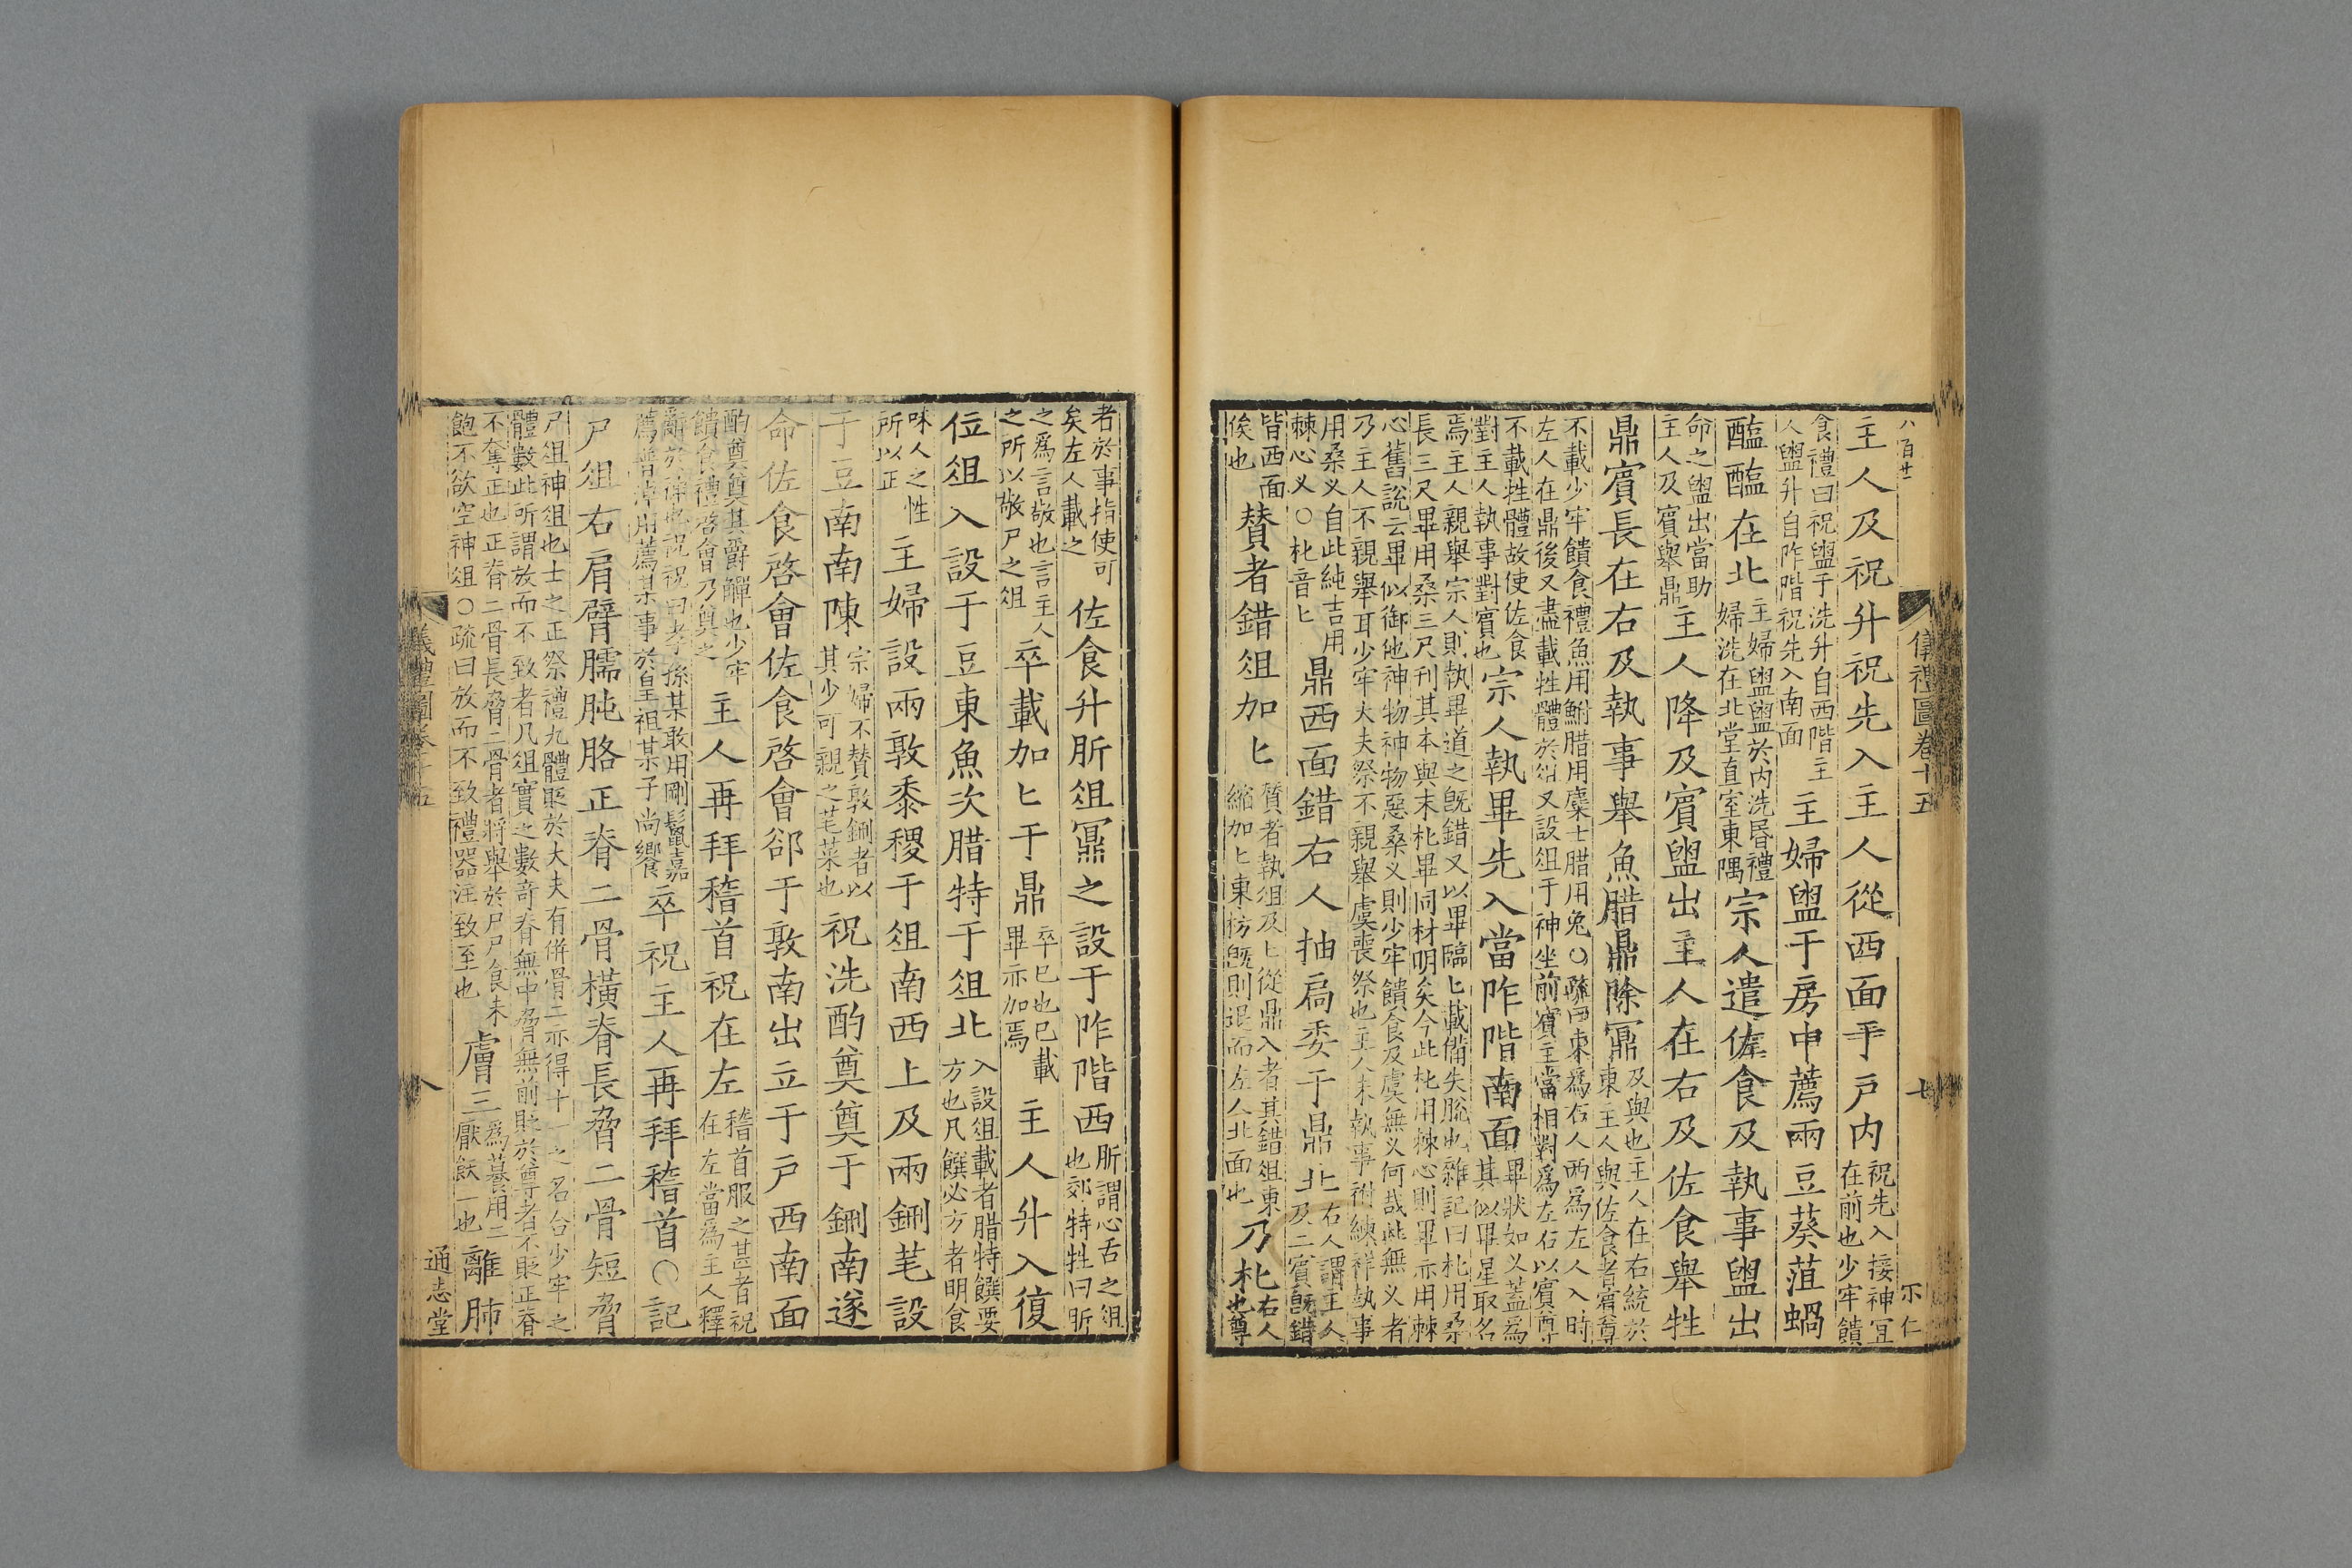 八百廿
儀禮圖卷十五
七
尔仁
主人及祝升祝先入主人從西面于戶内祝先入接神宜在前也少牢饋
食禮曰祝盥于洗升自西階主人盥升自阼階祝先入南面主婦盥于房中薦兩豆葵菹蝸
醢醢在北主婦盥盥於内洗昬禮婦洗在北堂直室東隅宗人遣佐食及執事盥出
命之盥出當助主人及賓舉鼎主人降及賓盥出主人在右及佐食舉牲
鼎賓長在右及執事舉魚腊鼎除鼏及與也主人在右統於東主人與佐食者賓尊
不載少牢饋食禮魚用鮒腊用麋士腊用兔○疏曰東爲右人西爲左人入時
左人在鼎後又盡載牲體於俎又設俎于神坐前賓主當相對爲左右以賓尊
不載牲體故使佐食對主人執事對賓也宗人執畢先入當阼階南面畢狀如叉蓋爲其似畢星取名
焉主人親舉宗人則執畢道之旣錯又以畢臨匕載備失脫也雜記曰朼用桑
長三尺畢用桑三尺刋其本與末朼畢同材明矣今此朼用棘心則畢亦用棘
心舊說云畢似御他神物神物惡桑叉則少牢饋食及虞無叉何哉此無叉者
乃主人不親舉耳少牢大夫祭不親舉虞喪祭也主人未執事祔練祥執事
用桑叉自此純吉用棘心叉○朼音匕鼎西面錯右人抽扃委于鼎北右人謂主人及二賓旣錯
皆西面俟也贊者錯俎加匕贊者執俎及匕從鼎入者其錯俎東縮加匕東枋旣則退而左人北面也乃朼右人也尊
者於事指使可矣左人載之佐食升肵俎鼏之設于阼階西肵謂心舌之俎也郊特牲曰肵
之爲言敬也言主人之所以敬尸之俎卒載加匕于鼎卒已也已載畢亦加焉主人升入復
位俎入設于豆東魚次腊特于俎北入設俎載者腊特饌要方也凡饌必方者明食
味人之性所以正主婦設兩敦黍稷于俎南西上及兩鉶芼設
于豆南南陳宗婦不贊敦鉶者以其少可親之芼菜也祝洗酌奠奠于鉶南遂
命佐食啓會佐食啓會郤于敦南出立于戶西南面
酌奠奠其爵觶也少牢饋食禮啓會乃奠之主人再拜稽首祝在左稽首服之甚者祝在左當爲主人釋
辭於神也祝祝曰孝孫某敢用剛鬣嘉薦普淖用薦某事於皇祖某子尚饗卒祝主人再拜稽首○記
尸俎右肩臂臑肫胳正脊二骨橫脊長脅二骨短脅
尸俎神俎也士之正祭禮九體貶於大夫有併骨二亦得十一之名合少牢之
體數此所謂放而不致者凡俎實之數奇脊無中脅無前貶於尊者不貶正脊
不奪正也正脊二骨長脅二骨者將舉於尸尸食未飽不欲空神俎○疏曰放而不致禮器注致至也膚三爲養用二厭飫一也離肺
儀禮圖卷十五
八
通志堂